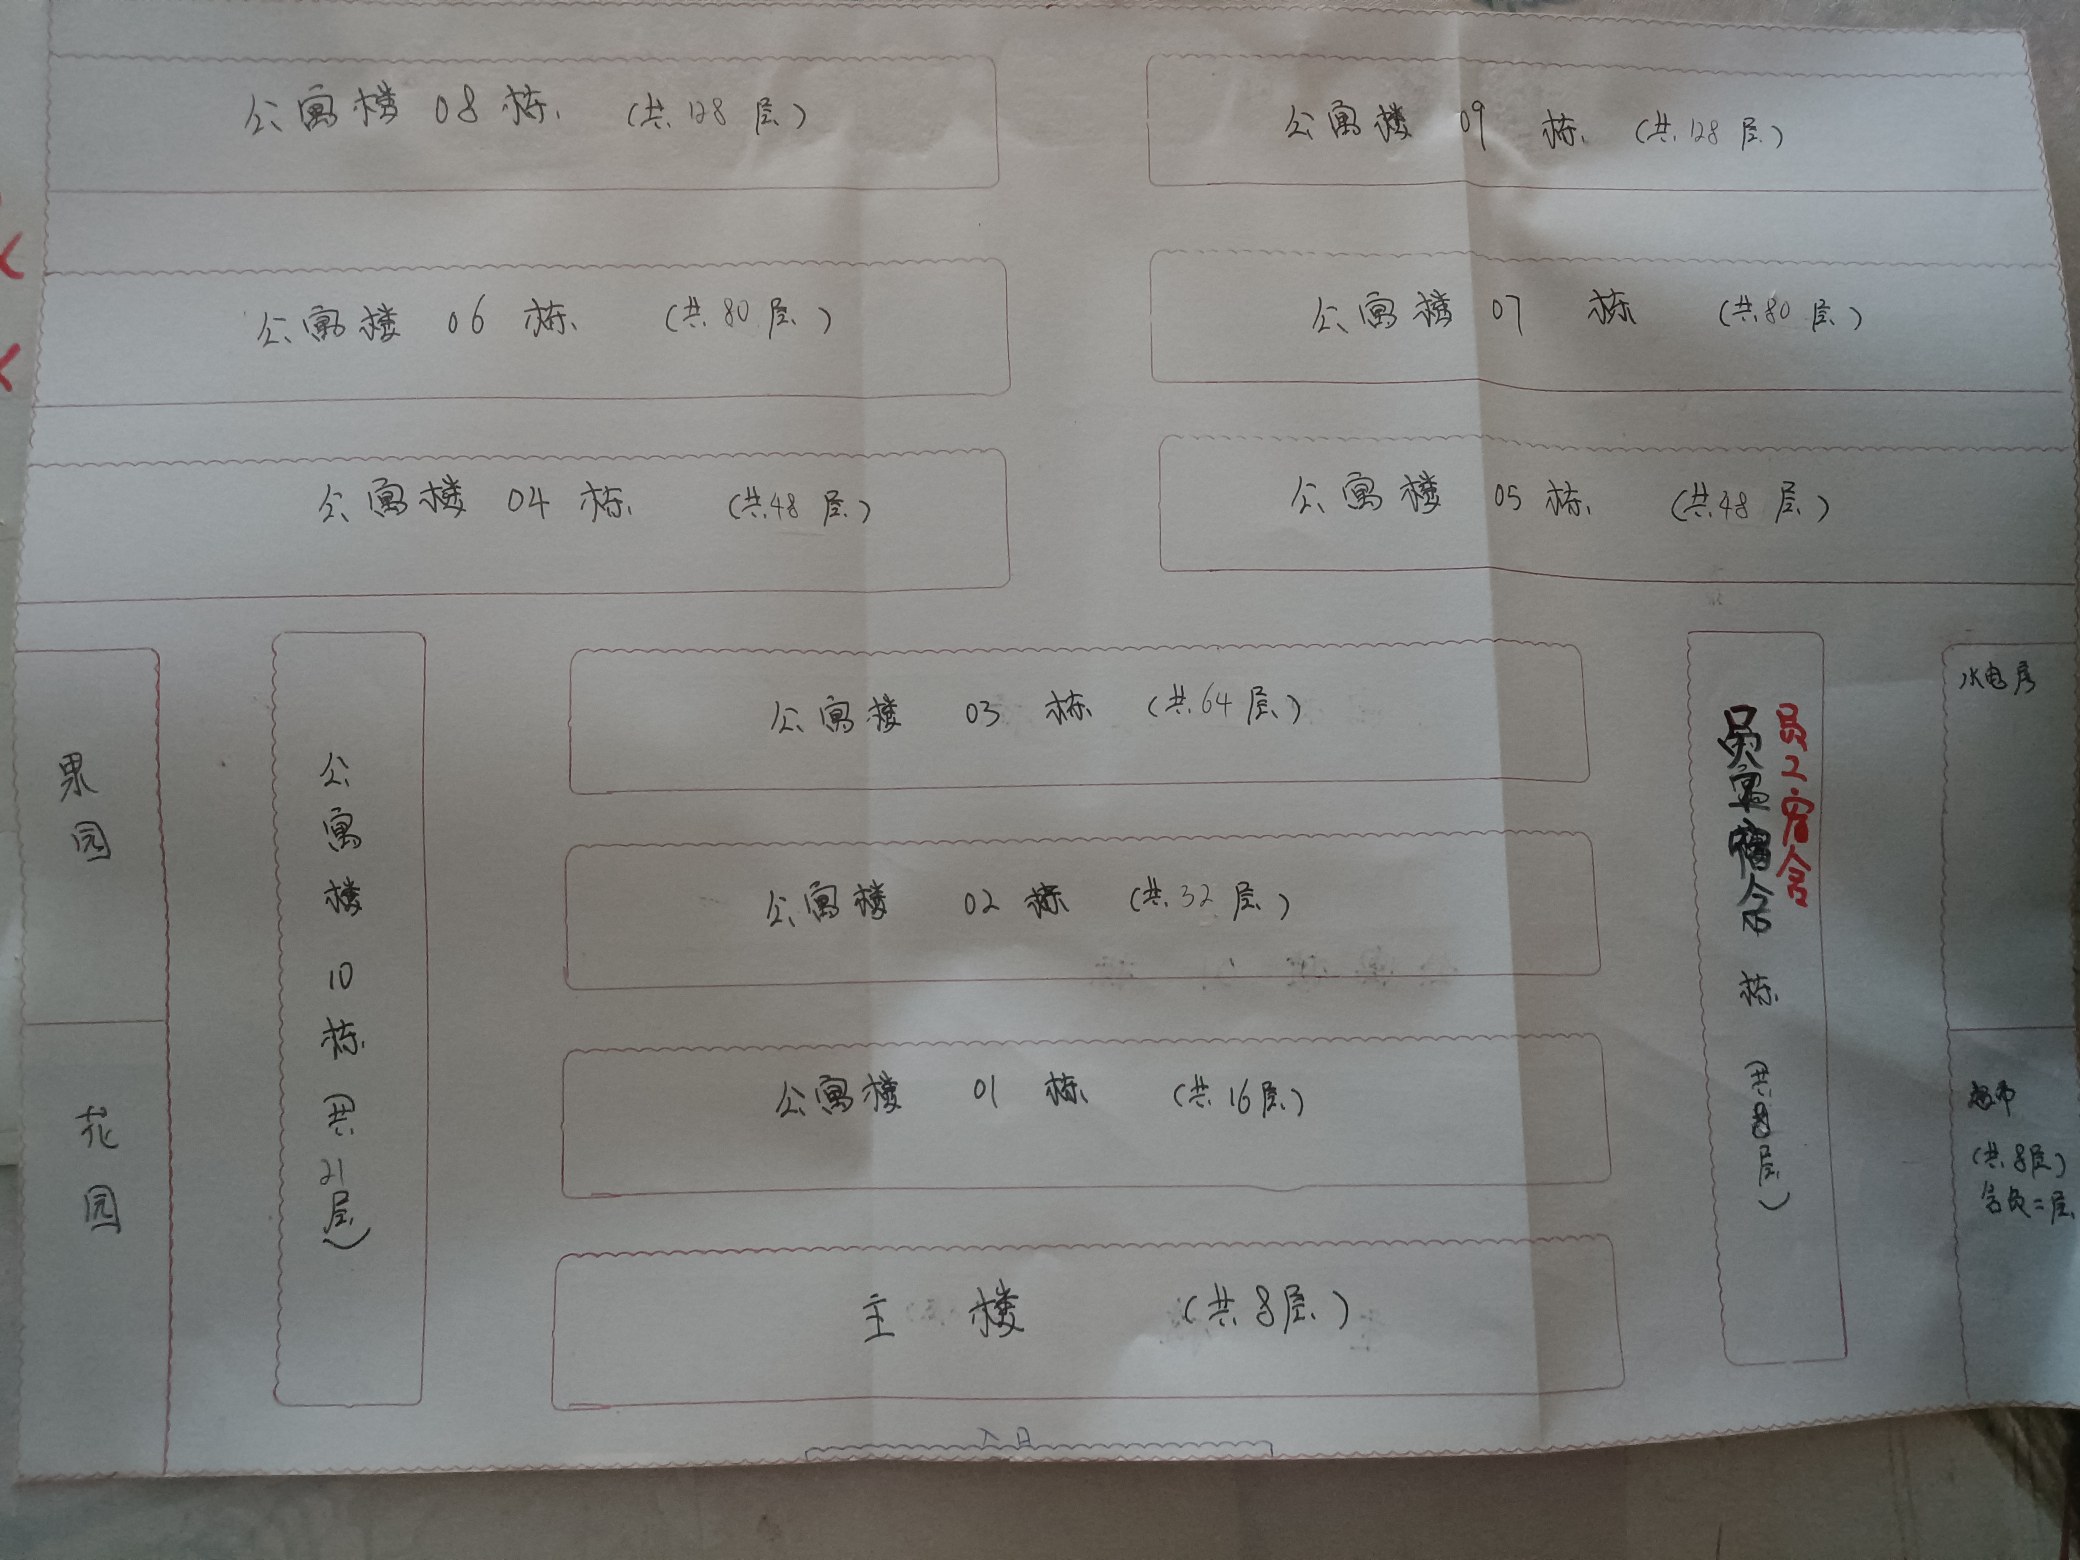 公寓楼 08 栋 (共128层)
公寓楼 09 栋 (共128层)
公寓楼 06 栋 (共80层)
公寓楼 07 栋 (共80层)
公寓楼 04 栋 (共48层)
公寓楼 05 栋 (共48层)
果园
公寓楼10栋(共21层)
公寓楼 03 栋 (共64层)
公寓楼 02 栋 (共32层)
公寓楼 01 栋 (共16层)
主楼 (共8层)
员工宿舍
栋 (共8层)
水电房
超市
(共8层)
含负二层
花园
入口